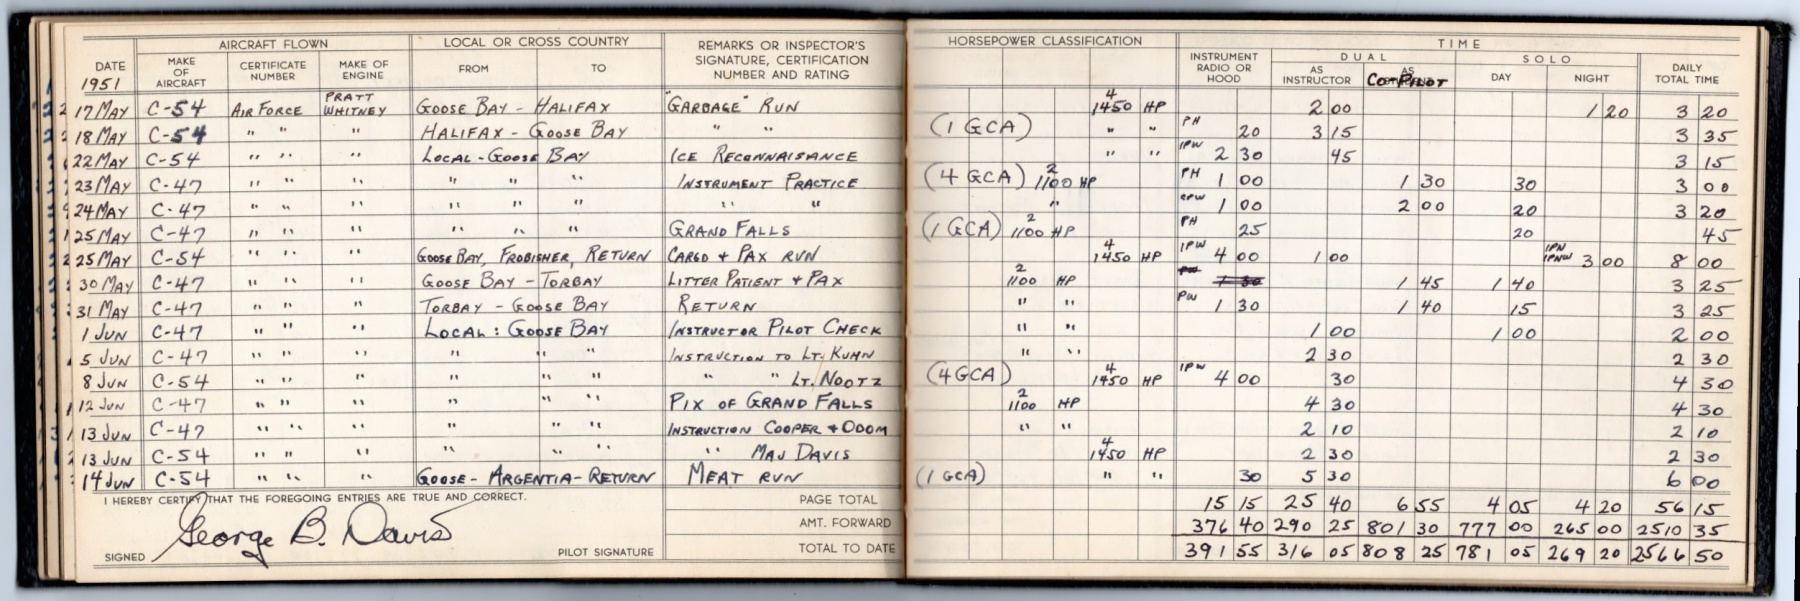 AIRCRAFT FLOWN LOCAL OR CROSS COUNTRY REMARKS OR INSPECTOR'S SIGNATURE, CERTIFICATION NUMBER AND RATING HORSEPOWER CLASSIFICATION TIME
DATE MAKE OF AIRCRAFT CERTIFICATE NUMBER MAKE OF ENGINE FROM TO INSTRUMENT RADIO OR HOOD DUAL SOLO DAILY TOTAL TIME
1951 AS INSTRUCTOR AS CO PILOT DAY NIGHT
17 MAY C-54 AIR FORCE PRATT WHITNEY GOOSE BAY - HALIFAX "GARBAGE" RUN 4 1450 HP 2 00 1 20 3 20
18 MAY C-54 " " " HALIFAX - GOOSE BAY " " (1 GCA) " " PH 20 3 15 3 35
22 MAY C-54 " " " LOCAL - GOOSE BAY ICE RECONNAISANCE " " IPW 2 30 45 3 15
23 MAY C-47 " " " " " " INSTRUMENT PRACTICE (4 GCA) 2 1100 HP PH 1 00 1 30 30 3 00
24 MAY C-47 " " " " " " " " " CPW 1 00 2 00 20 3 20
25 MAY C-47 " " " " " " GRAND FALLS (1 GCA) 2 1100 HP PH 25 20 45
25 MAY C-54 " " " GOOSE BAY, FROBISHER, RETURN CARGO + PAX RUN 4 1450 HP IPW 4 00 1 00 IPN IPNW 3 00 8 00
30 MAY C-47 " " " GOOSE BAY - TORBAY LITTER PATIENT + PAX 2 1100 HP 1 45 1 40 3 25
31 MAY C-47 " " " TORBAY - GOOSE BAY RETURN " " PW 1 30 1 40 15 3 25
1 JUN C-47 " " " LOCAL: GOOSE BAY INSTRUCTOR PILOT CHECK " " 1 00 1 00 2 00
5 JUN C-47 " " " " " " INSTRUCTION TO LT. KUHN " " 2 30 2 30
8 JUN C-54 " " " " " " " " LT. NOOTZ (4 GCA) 4 1450 HP IPW 4 00 30 4 30
12 JUN C-47 " " " " " " PIX OF GRAND FALLS 2 1100 HP 4 30 4 30
13 JUN C-47 " " " " " " INSTRUCTION COOPER + ODOM " " 2 10 2 10
13 JUN C-54 " " " " " " " MAJ DAVIS 4 1450 HP 2 30 2 30
14 JUN C-54 " " " GOOSE - ARGENTIA - RETURN MEAT RUN (1 GCA) " " 30 5 30 6 00
I HEREBY CERTIFY THAT THE FOREGOING ENTRIES ARE TRUE AND CORRECT. PAGE TOTAL 15 15 25 40 6 55 4 05 4 20 56 15
George B. Davis AMT. FORWARD 376 40 290 25 801 30 777 00 265 00 2510 35
SIGNED PILOT SIGNATURE TOTAL TO DATE 391 55 316 05 808 25 781 05 269 20 2566 50